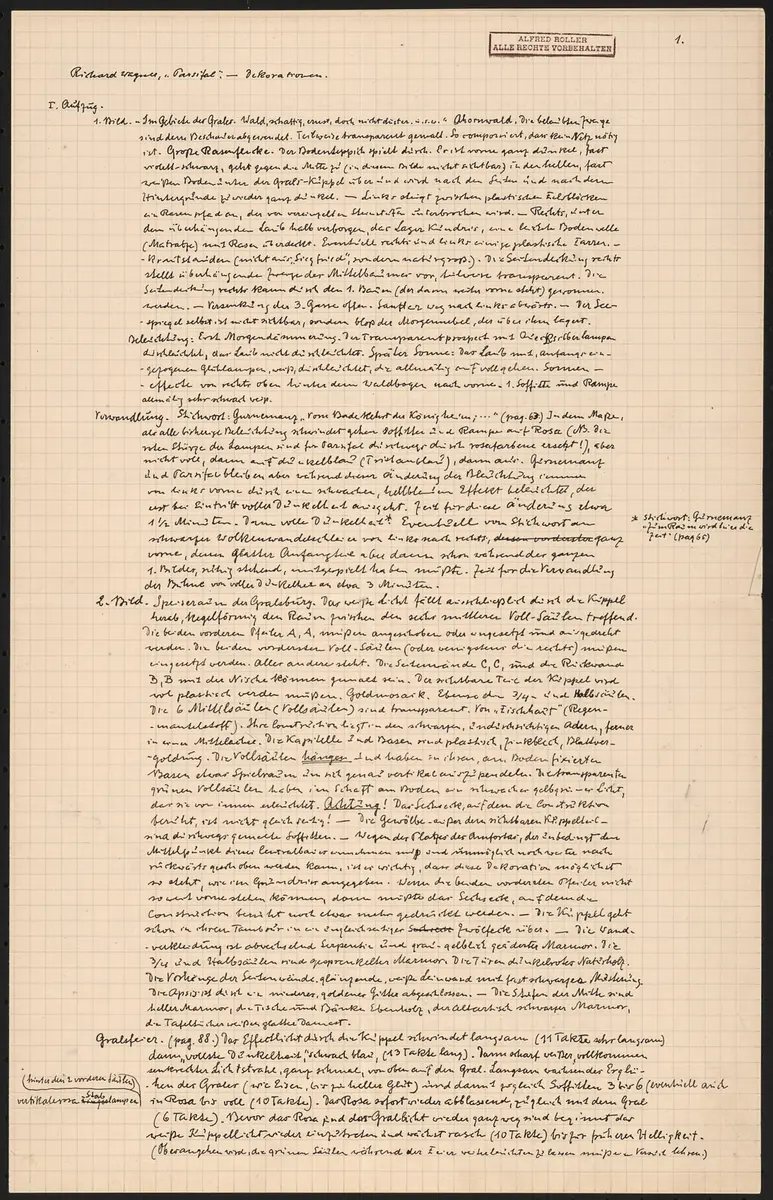 ALFRED ROLLER
ALLE RECHTE VORBEHALTEN
1.
Richard Wagner, „Parsifal“. — Dekorationen.
I. Aufzug.
1. Bild. – Im Gebiete des Grales. Wald, schattig, ernst, doch nicht düster. u.s.w. “ Ahornwald. Die belaubten Zweige
sind dem Beschauer abgewendet. Teilweise transparent gemalt. So componiert, dass kein Netz nötig
ist. Große Rasenflecke. Der Bodenteppich spielt durch. Er ist vorne ganz dunkel, fast
violett-schwarz, geht gegen die Mitte zu (in diesem Bilde nicht sichtbar) in den hellen, fast
weißen Boden unter der Grals-Kuppel über und wird nach den Seiten und nach dem
Hintergrunde zu wieder ganz dunkel. — Links steigt zwischen plastischen Felsblöcken
ein Rasenpfad an, der von vereinzelten Steinstufen unterbrochen wird. — Rechts, unter
dem überhängenden Laub halb verborgen, das Lager Kundrys, eine leichte Bodenwelle
(Matratze) mit Rasen überdeckt. Eventuell rechts und links einige plastische Farren-
-krautstauden (nicht aus „Siegfried“, sondern naturgroß.) Die Seitendeckung rechts
stellt überhängende Zweige der Mittelbäume vor, teilweise transparent. Die
Seitendeckung rechts kann durch den 1. Baum (der dann weiter vorne steht) gewonnen
werden. — Versenkung der 3. Gasse offen. Sanfter Weg nach links abwärts. — Der See-
spiegel selbst ist nicht sichtbar, sondern bloß der Morgennebel, der über ihm lagert.
Beleuchtung: Erst Morgendämmerung. Der Transparentprospect mit Quecksilberlampen
durchleuchtet, das Laub nicht durchleuchtet. Später Sonne: das Laub mit, anfangs ein-
-gezogenen Glühlampen, weiß, durchleuchtet, die allmälig auf voll gehen. Sonnen-
-effecte von rechts oben hinter dem Waldbogen nach vorne. 1. Soffitte und Rampe
allmälig sehr schwach weiß.
Verwandlung. Stichwort: Gurnemanz „Vom Bade kehrt der König heim; …“ (pag. 63) In dem Maße,
als alle bisherige Beleuchtung schwindet gehen Soffitten und Rampe auf Rosa (NB. Die
roten Stürze der Lampen sind für Parsifal durchwegs durch rosafarbene ersetzt!), aber
nicht voll, dann auf dunkelblau (Tristanblau), dann aus. Gurnemanz
und Parsifal bleiben aber während dieser Änderung der Beleuchtung immer
von links vorne durch einen schwachen, hellblauen Effekt beleuchtet, der
erst bei Eintritt voller Dunkelheit ausgeht. Zeit für diese Änderung etwa
1½ Minuten. Dann volle Dunkelheit.* Eventuell vom Stichwort an
schwarzer Wolkenwandelschleier von links nach rechts, dessen vorderster ganz
vorne, deren glatter Anfangteil aber dann schon während des ganzen
1. Bildes, ruhig stehend, mitgespielt haben müßte. Zeit für die Verwandlung
der Bühne von voller Dunkelheit an etwa 3 Minuten.
* Stichwort: Gurnemanz
„zum Raum wird hier die
Zeit“ (pag 65)
2. Bild. Speiseraum der Gralsburg. Das weiße Licht fällt ausschließlich durch die Kuppel
herab, kegelförmig den Raum zwischen den sechs mittleren Voll-Säulen treffend.
Die beiden vorderen Pfeiler A, A, müßen angeschoben oder angesetzt und ausgedreht
werden. Die beiden vordersten Voll-Säulen (oder wenigstens die rechte) müßen
eingesetzt werden. Alles andere steht. Die Seitenwände C, C, und die Rückwand
B, B mit der Nische können gemalt sein. Der sichtbare Teil der Kuppel wird
wol plastisch werden müßen. Goldmosaik. Ebenso die 3/4- und Halbsäulen.
Die 6 Mittelsäulen (Vollsäulen) sind transparent. Von „Fischhaut“ (Regen-
-mantelstoff). Ihre Construction liegt in den schwarzen, undurchsichtigen Adern, ferner
in einer Mittelachse. Die Kapitelle und Basen sind plastisch, Zinkblech, Blattver-
-goldung. Die Vollsäulen hängen und haben zu ihren, am Boden fixierten
Basen etwas Spielraum um sich genau vertikal auszupendeln. Die transparenten
grünen Vollsäulen haben im Schaft am Boden ein schwaches gelbgrünes Licht,
das sie von innen erleuchtet. Achtung! Das Sechseck, auf dem die Construktion
beruht, ist nicht gleichseitig! — Die Gewölbe außer dem sichtbaren Kuppelteil
sind durchwegs gemalte Soffitten. — Wegen des Platzes des Amfortas, der unbedingt den
Mittelpunkt dieses Centralbaues einnehmen muß und unmöglich noch weiter nach
rückwärts geschoben werden kann, ist es wichtig, dass diese Dekoration möglichst
so steht, wie im Grundriss angegeben. Wenn die beiden vordersten Pfeiler nicht
so weit vorne stehen können, dann müßte das Sechseck, auf dem die
Construction beruht noch etwas mehr gedrückt werden. — Die Kuppel geht
schon in ihrem Tambour in ein ungleichseitiges Sechseck Zwölfeck über. — Die Wand-
-verkleidung ist abwechselnd Serpentin und grau-gelblich geäderter Marmor. Die
3/4 und Halbsäulen sind gesprenkelter Marmor. Die Türen dunkelrotes Naturholz.
Die Vorhänge der Seitenwände, glänzende, weiße Leinwand mit fast schwarzer Musterung.
Die Apsis ist durch ein niederes, goldenes Gitter abgeschlossen. — Die Stufen der Mitte sind
heller Marmor, die Tische und Bänke Ebenholz, der Altartisch schwarzer Marmor,
die Tafeltücher weißer glatter Damast.
Gralsfeier. (pag. 88.) Das Effectlicht durch die Kuppel schwindet langsam (11 Takte sehr langsam)
dann, vollste Dunkelheit, „schwach blau, (13 Takte lang). Dann scharf weißer, vollkommen
senkrechter Lichtstrahl, ganz schmal, von oben auf den Gral. Langsam während der Erglü-
-hen des Grales (wie Eisen, bis zu heller Glut) und damit zugleich Soffitten 3 bis 6 (eventuell auch
(hinter den 2 vorderen Säulen)
vertikale rosa Stablampen
in Rosa bis voll (10 Takte). Das Rosa sofort wieder abblassend, zugleich mit dem Gral
(6 Takte). Bevor das Rosa und das Grallicht wieder ganz weg sind beginnt das
weiße Kuppellicht wieder einzutreten und wächst rasch (10 Takte) bis zur früheren Helligkeit.
(Ob es angehen wird, die grünen Säulen während der Feier verleuchten zu lassen müßte ein Versuch lehren.)